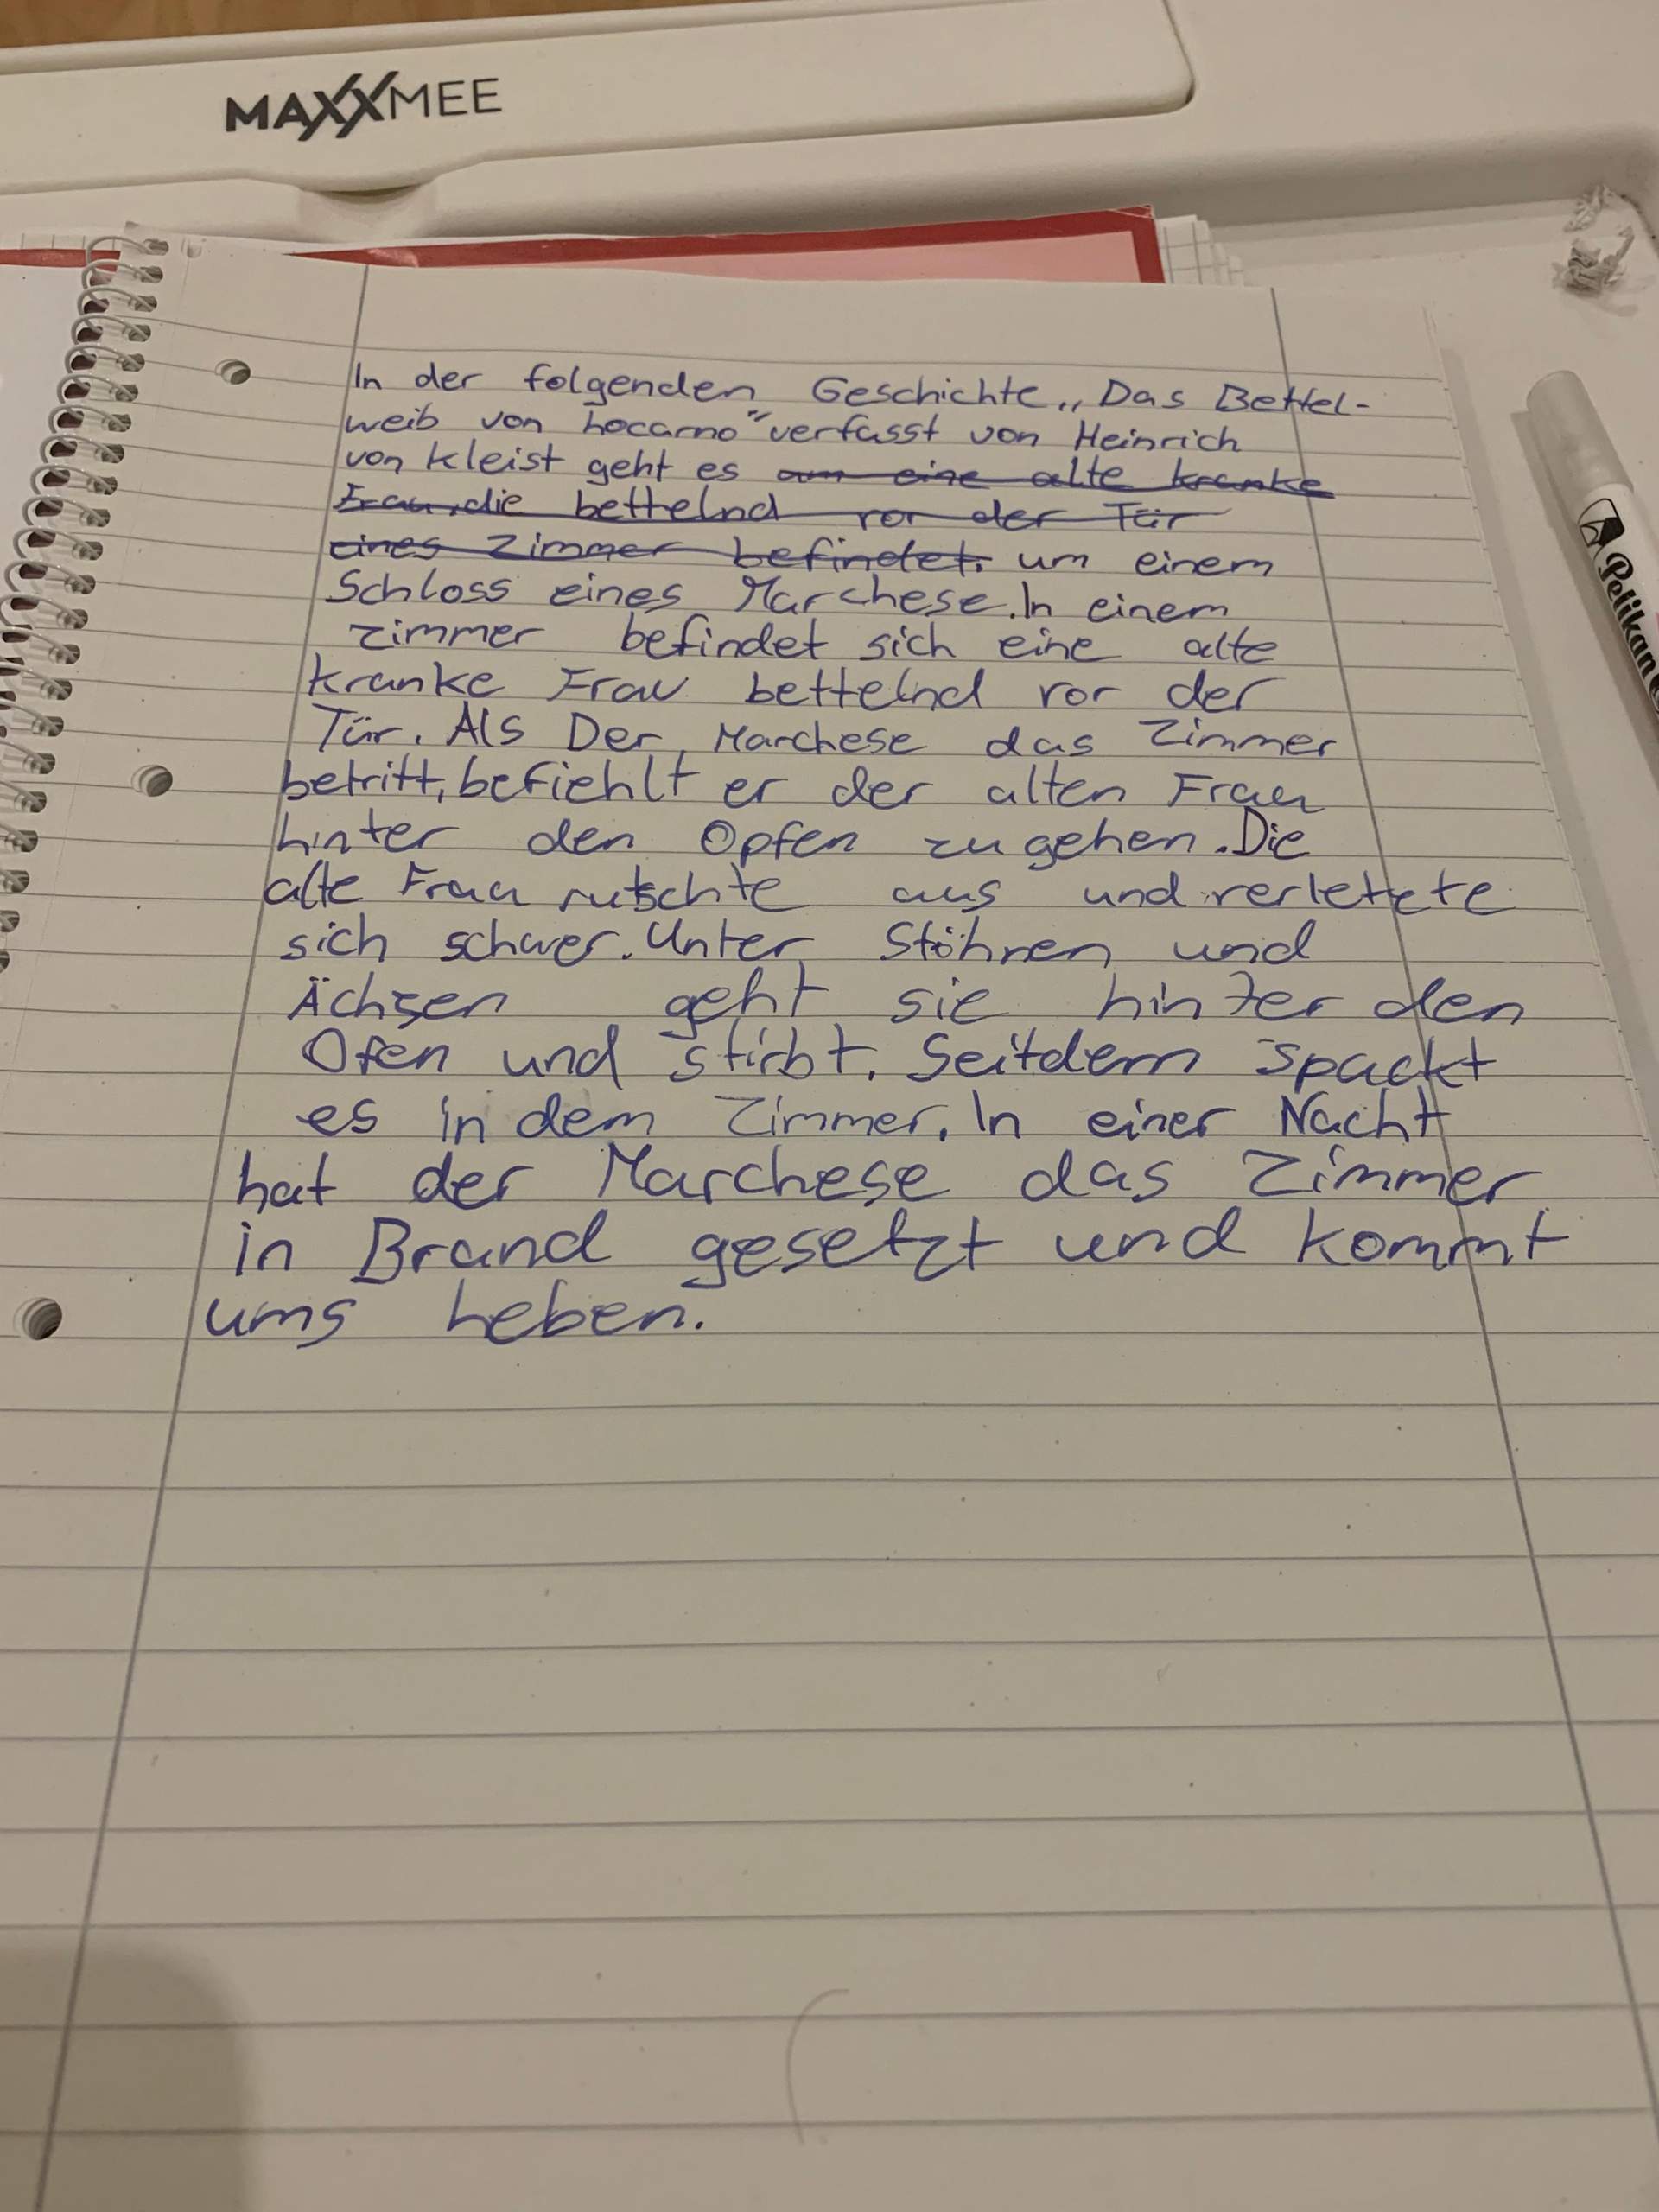 MAXXMEE
In der folgenden Geschichte „Das Bettel-
weib von Locarno" verfasst von Heinrich
von Kleist geht es um eine alte kranke
Frau, die bettelnd vor der Tür
eines Zimmer befindet. um einem
Schloss eines Marchese. In einem
zimmer befindet sich eine alte
kranke Frau bettelnd vor der
Tür. Als Der Marchese das Zimmer
betritt, befiehlt er der alten Frau
hinter den Opfen zu gehen. Die
alte Frau rutschte aus und verletzte
sich schwer. Unter Stöhren und
Ächsen geht sie hinter den
Ofen und stirbt. Seitdem spackt
es in dem Zimmer. In einer Nacht
hat der Marchese das Zimmer
in Brand gesetzt und kommt
ums Leben.
Pelikan